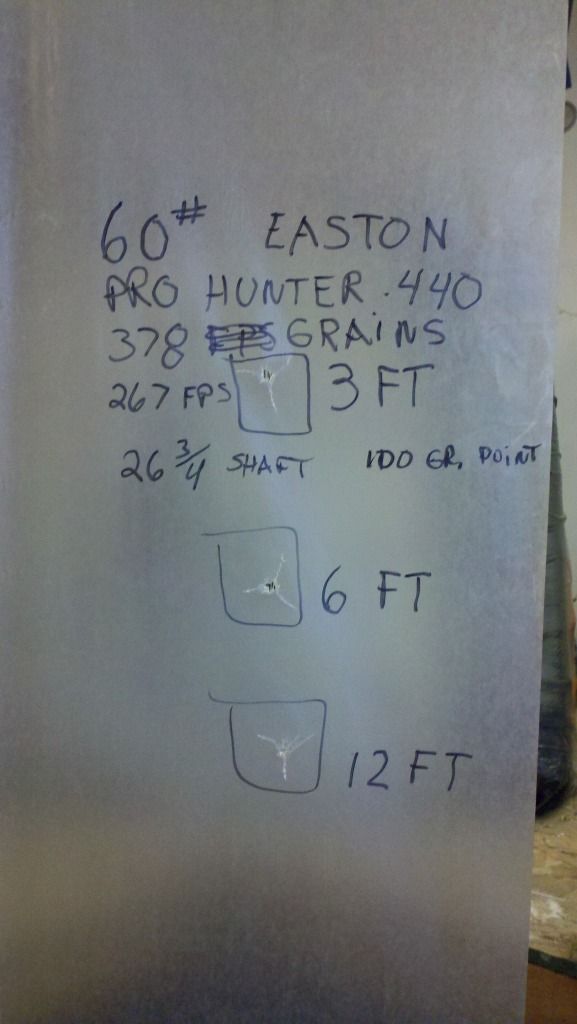 60# EASTON
PRO HUNTER .440
378 GRAINS
267 FPS 3 FT
26 3/4 SHAFT 100 GR. POINT
6 FT
12 FT